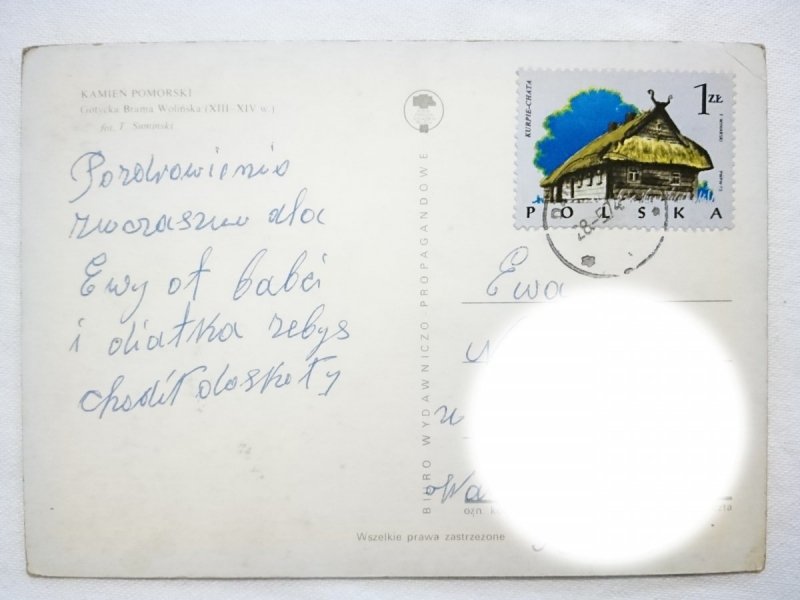 KAMIEŃ POMORSKI
Gotycka Brama Wolińska (XIII–XIV w.)
fot. T. Sumiński
Pozdrowienia
zwczasuw dla
Ewy ot babci
i diatka zebys
chodił doskoły
BIURO WYDAWNICZO PROPAGANDOWE
KURPIE-CHATA
1 ZŁ
POLSKA
Ewa
Wszelkie prawa zastrzeżone